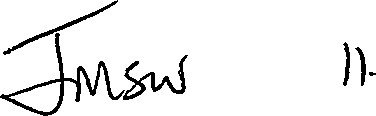 JMSW 11.